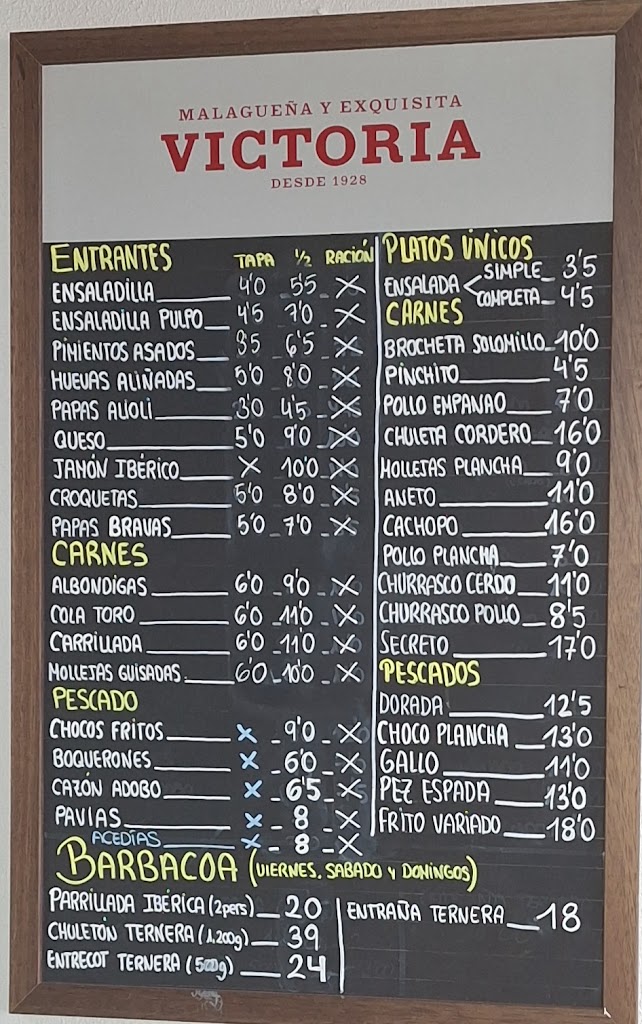 MALAGUEÑA Y EXQUISITA
VICTORIA
DESDE 1928
ENTRANTES TAPA ½ RACIÓN
ENSALADILLA 4'0 5'5 X
ENSALADILLA PULPO 4'5 7'0 X
PIMIENTOS ASADOS 35 6'5 X
HUEVAS ALIÑADAS 5'0 8'0 X
PAPAS ALIOLI 3'0 4'5 X
QUESO 5'0 9'0 X
JAMÓN IBÉRICO X 10'0 X
CROQUETAS 5'0 8'0 X
PAPAS BRAVAS 5'0 7'0 X
CARNES
ALBONDIGAS 6'0 9'0 X
COLA TORO 6'0 11'0 X
CARRILLADA 6'0 11'0 X
MOLLEJAS GUISADAS 6'0 10'0 X
PESCADO
CHOCOS FRITOS X 9'0 X
BOQUERONES X 6'0 X
CAZÓN ADOBO X 6'5 X
PAVIAS X 8 X
ACEDÍAS X 8 X
PLATOS ÚNICOS
ENSALADA SIMPLE 3'5
COMPLETA 4'5
CARNES
BROCHETA SOLOMILLO 10'0
PINCHITO 4'5
POLLO EMPANAO 7'0
CHULETA CORDERO 16'0
MOLLEJAS PLANCHA 9'0
ANETO 11'0
CACHOPO 16'0
POLLO PLANCHA 7'0
CHURRASCO CERDO 11'0
CHURRASCO POLLO 8'5
SECRETO 17'0
PESCADOS
DORADA 12'5
CHOCO PLANCHA 13'0
GALLO 11'0
PEZ ESPADA 13'0
FRITO VARIADO 18'0
BARBACOA (VIERNES, SABADO Y DOMINGOS)
PARRILLADA IBÉRICA (2pers) 20
CHULETÓN TERNERA (1,200g) 39
ENTRECOT TERNERA (500g) 24
ENTRAÑA TERNERA 18